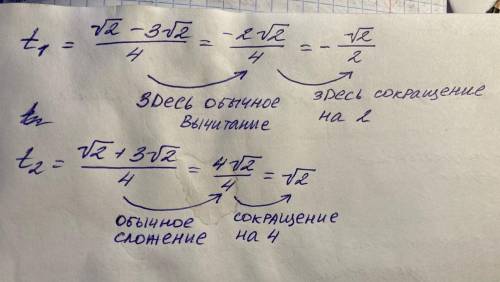 t₁ = (√2 − 3√2)/4 = (−2√2)/4 = −√2/2
здесь обычное вычитание
здесь сокращение на 2
t₂ = (√2 + 3√2)/4 = 4√2/4 = √2
обычное сложение
сокращение на 4